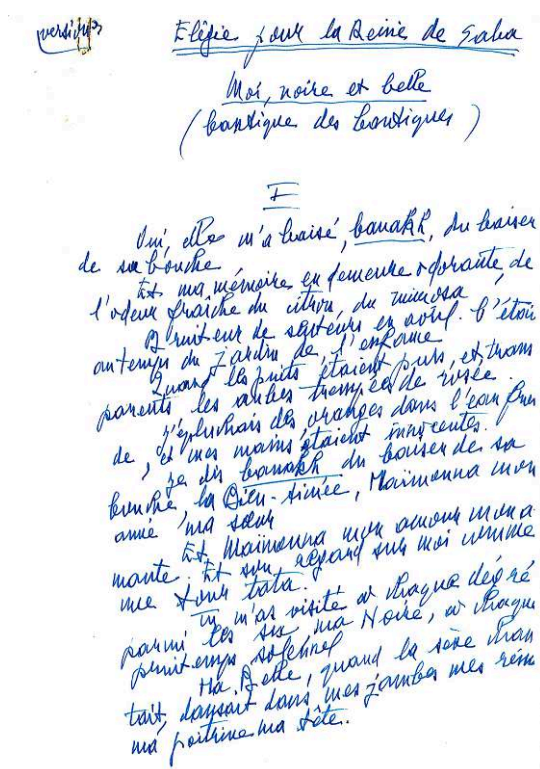 version 3
Elégie pour la Reine de Saba
Moi, noire et belle
(Cantique des Cantiques)
I
Oui, elle m'a baisé, banakh, du baiser
de sa bouche
Et ma mémoire en demeure odorante, de
l'odeur fraîche du citron, du mimosa
de senteurs en avril. C'étai
au temps du jardin de l'enfance
Quand les nuits étaient purs, et trans
parents les aubes trempées de rosée.
J'épluchais des oranges dans l'eau frui
de, et mes mains étaient innocentes.
Je dis banakh du baiser de sa
bouche, la Bien-Aimée, Maïmouna mon
amie ma sœur
Et Maïmouna mon amour mon a
mante. Et son regard sur moi comme
une tour tata.
Tu m'as visité à chaque degré
parmi les six, ma Noire, à chaque
printemps solennel
Ma Belle, quand la sève chan
tait, dansait dans mes jambes mes rein
ma poitrine ma tête.